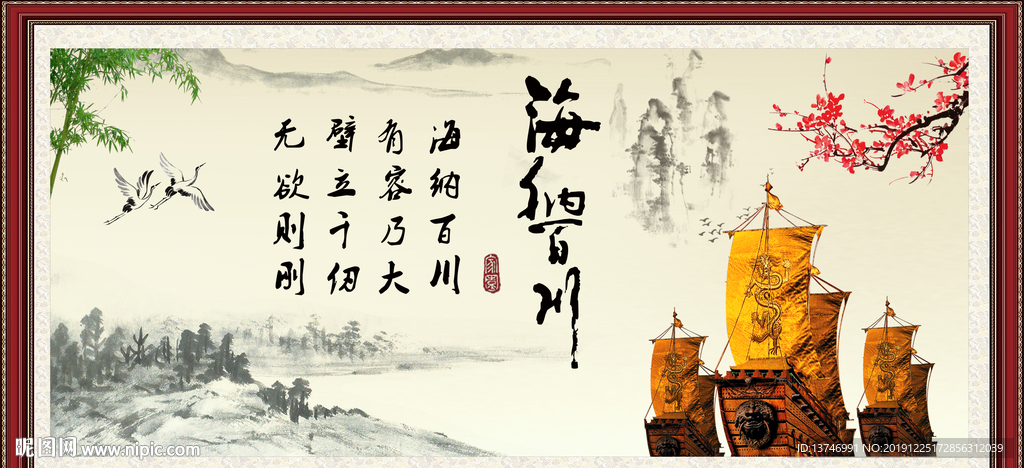 海纳百川
海纳百川
有容乃大
壁立千仞
无欲则刚
昵图网 www.nipic.com
ID:13746991 NO:20191225172856312039